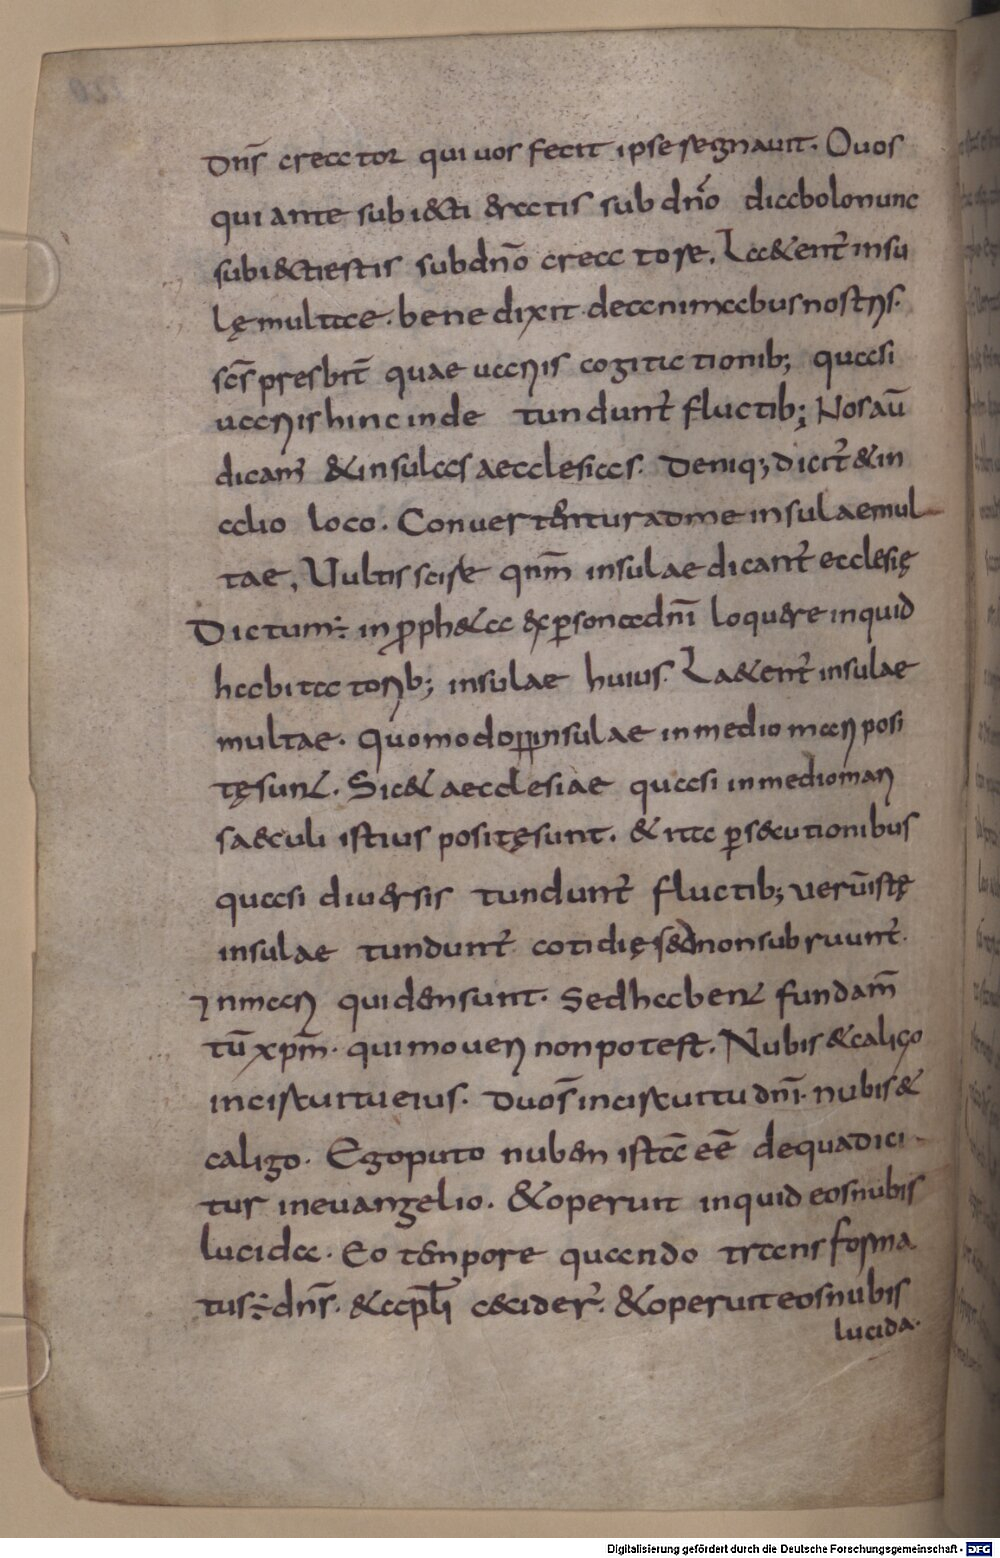 dn̄s creator qui uos fecit ipse segnauit. Quos
qui ante subiecti eratis sub dn̄o diabolo nunc
subiecti estis sub dn̄o creatore. Laetent̄ insu
lę multae. benedixit de animabus nostris.
sc̄s presbit̄ quae uariis cogitationib; quasi
uariis hinc inde tundunt̄ fluctib; Nos aū
dicam̄ & insulas aecclesias. Deniq; dicit̄ & in
alio loco. Conuertentur ad me insulae mul
tae. Uultis scire qnm̄ insulae dicant̄ ecclesię
Dictum ÷ in ꝓph&a ex ꝑsona dn̄i loquere inquid
habitatorib; insulae huius. La&ent̄ insulae
multae. Quomodo ꝓp insulae in medio mari posi
tę sunt. Sic & aecclesiae quasi in medio mari
saeculi istius positę sunt. & ita ꝑsecutionibus
quasi diuersis tundunt̄ fluctib; uerū istę
insulae tundunt̄ cotidię sed non subruunt̄.
In mari quidem sunt. Sed habent fundam̄
tū xp̄m. qui moueri non potest. Nubis & caligo
in circuitu eius. Duos̄ in circuitu dn̄i. nubis &
caligo. Ego puto nubem istā eē de qua dici
tur in euangelio. & operuit inquid eos nubis
lucida. Eo tempore quando transforma
tus ÷ dn̄s. & apl̄i cecider̄. & operuit eos nubis
lucida.
Digitalisierung gefördert durch die Deutsche Forschungsgemeinschaft - DFG